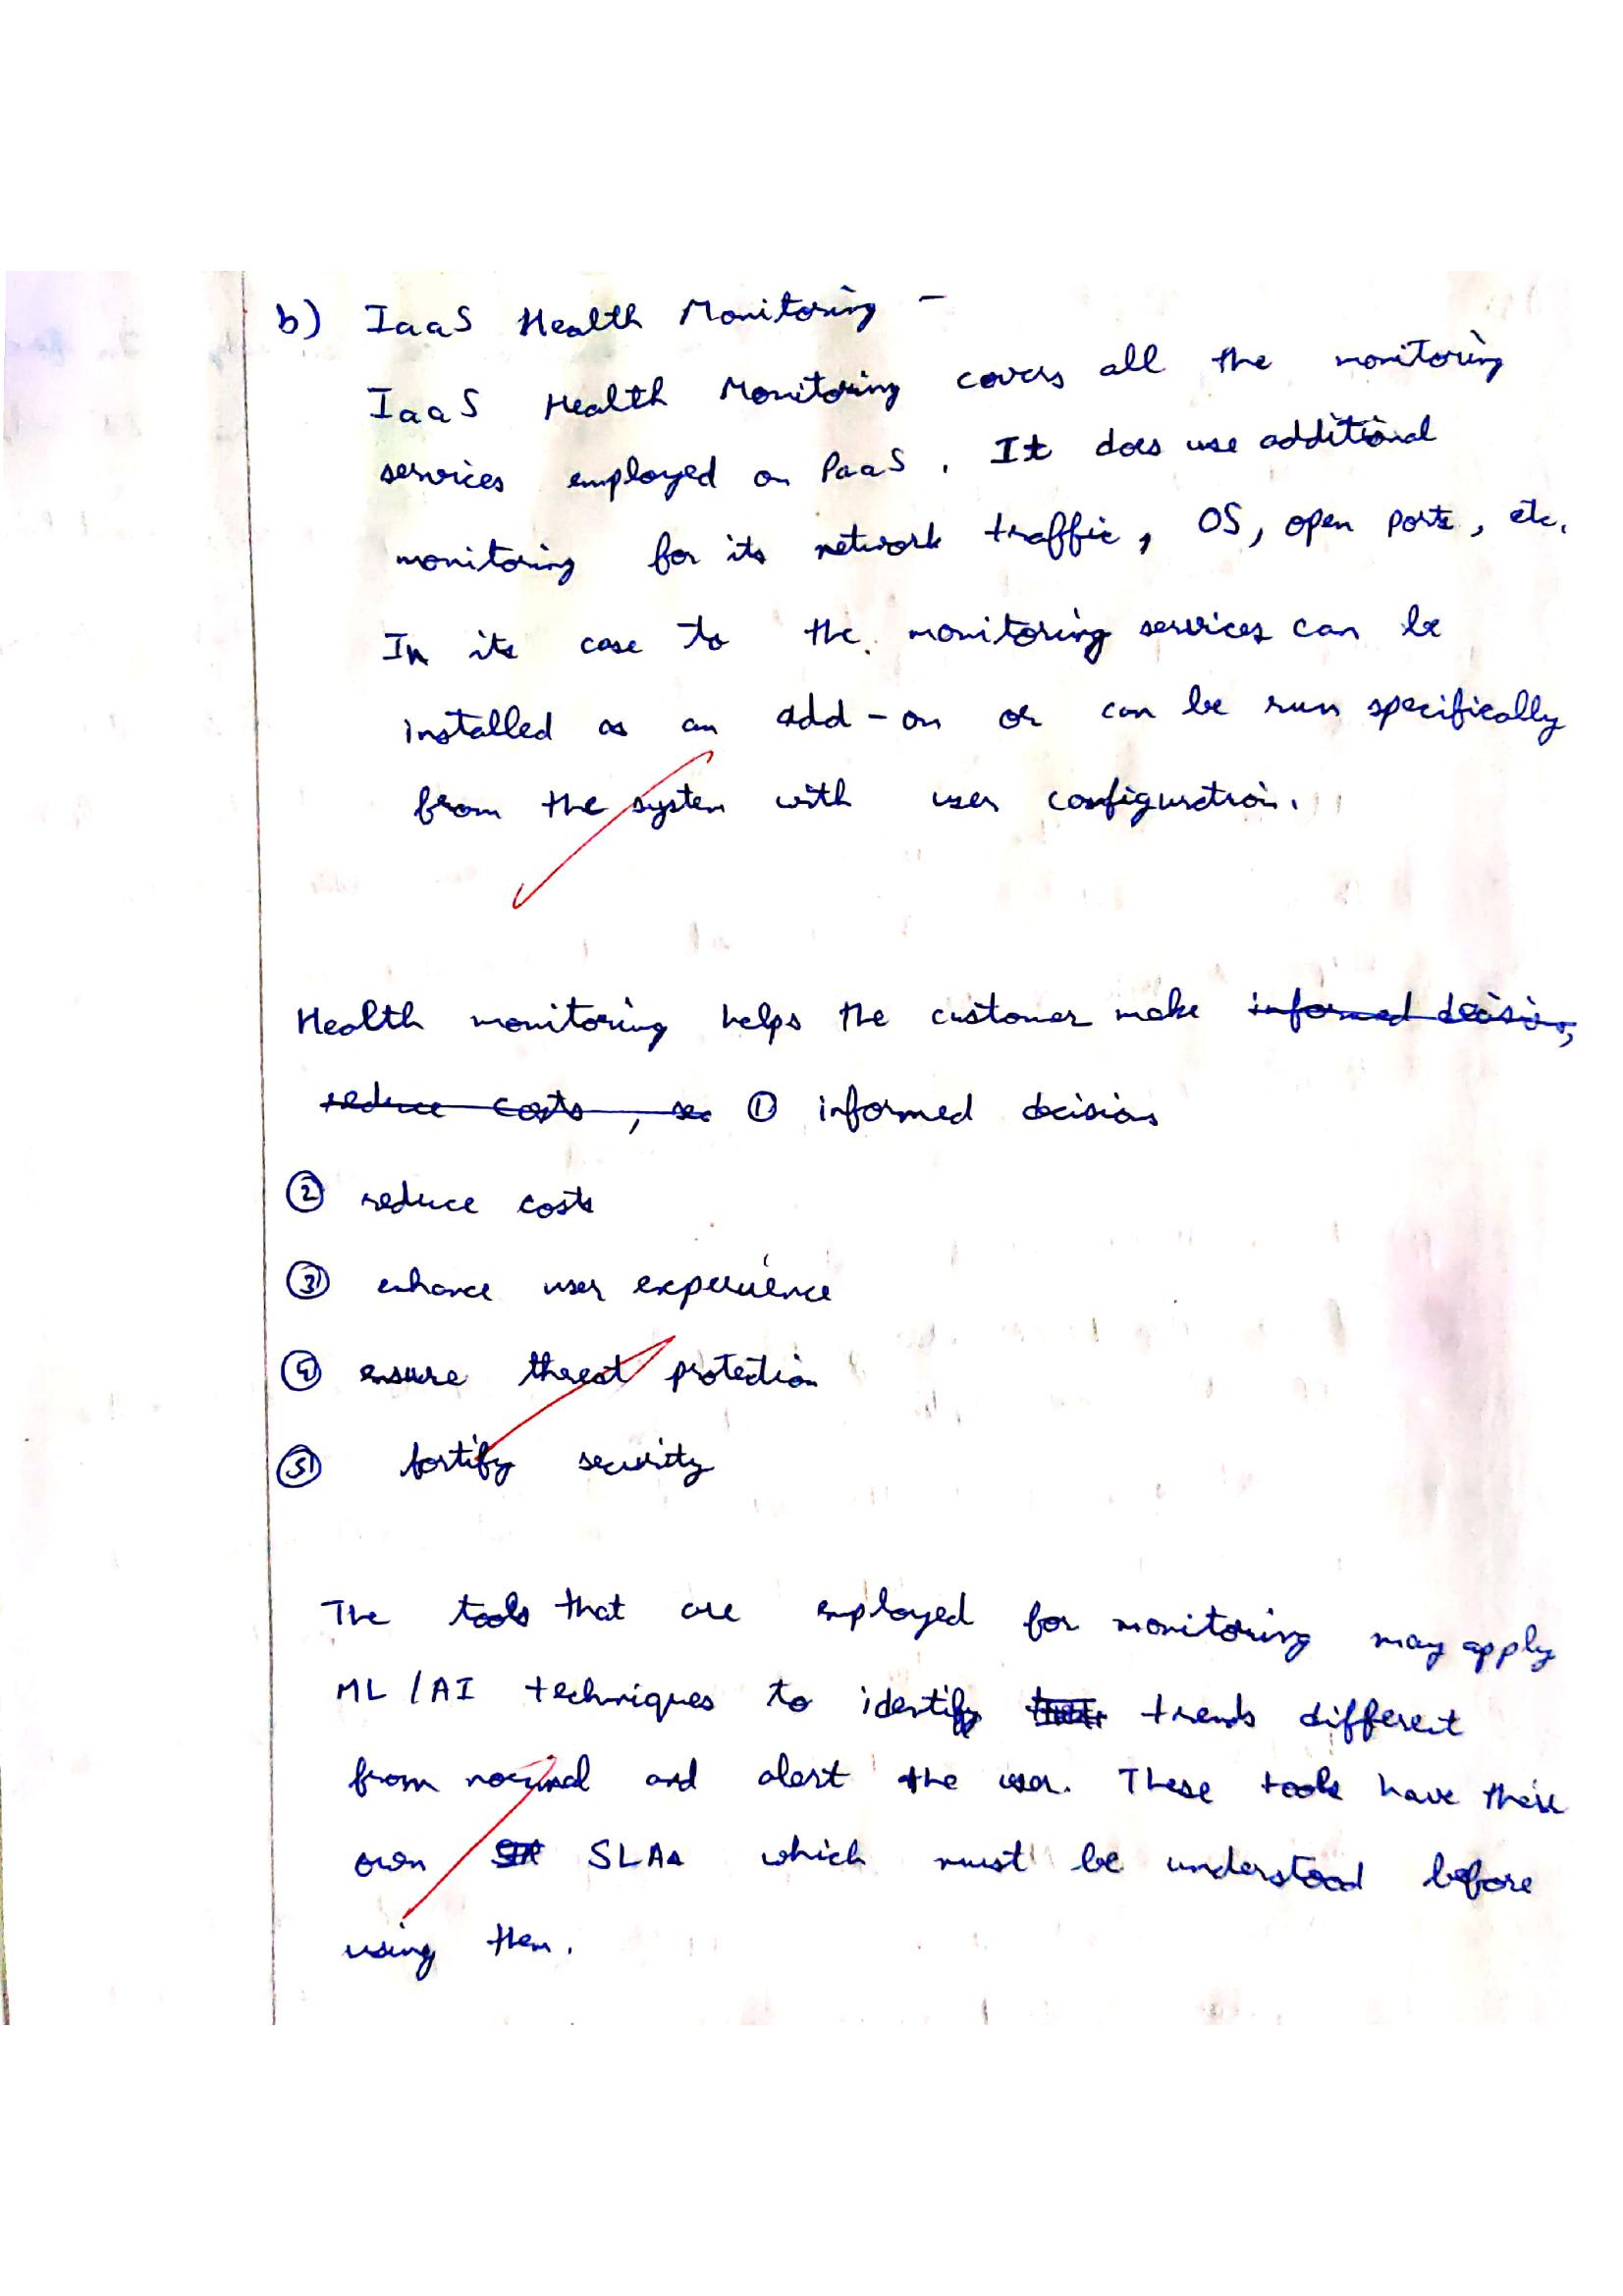 b) IaaS Health Monitoring -
IaaS Health Monitoring covers all the monitoring
services employed on PaaS. It does use additional
monitoring for its network traffic, OS, open ports, etc.
In its case to the monitoring services can be
installed as an add-on or can be run specifically
from the system with user configuration.
Health monitoring helps the customer make informed decision,
reduce costs, sec ① informed decisions
② reduce costs
③ enhance user experience
④ ensure threat protection
⑤ fortify security
The tools that are employed for monitoring may apply
ML/AI techniques to identify trends different
from normal and alert the user. These tools have their
own SLAs which must be understood before
using them.